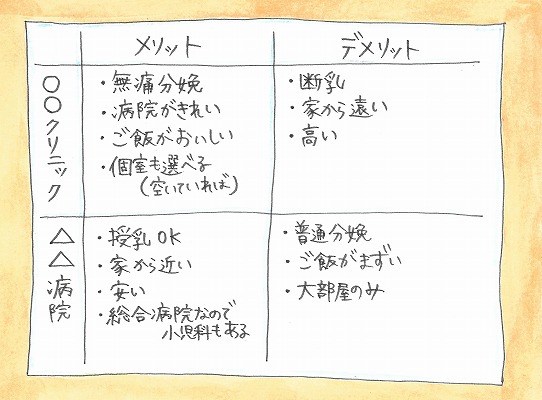 メリット
デメリット
○○クリニック
・無痛分娩
・病院がきれい
・ご飯がおいしい
・個室も選べる
(空いていれば)
・断乳
・家から遠い
・高い
△△病院
・授乳OK
・家から近い
・安い
・総合病院なので
小児科もある
・普通分娩
・ご飯がまずい
・大部屋のみ